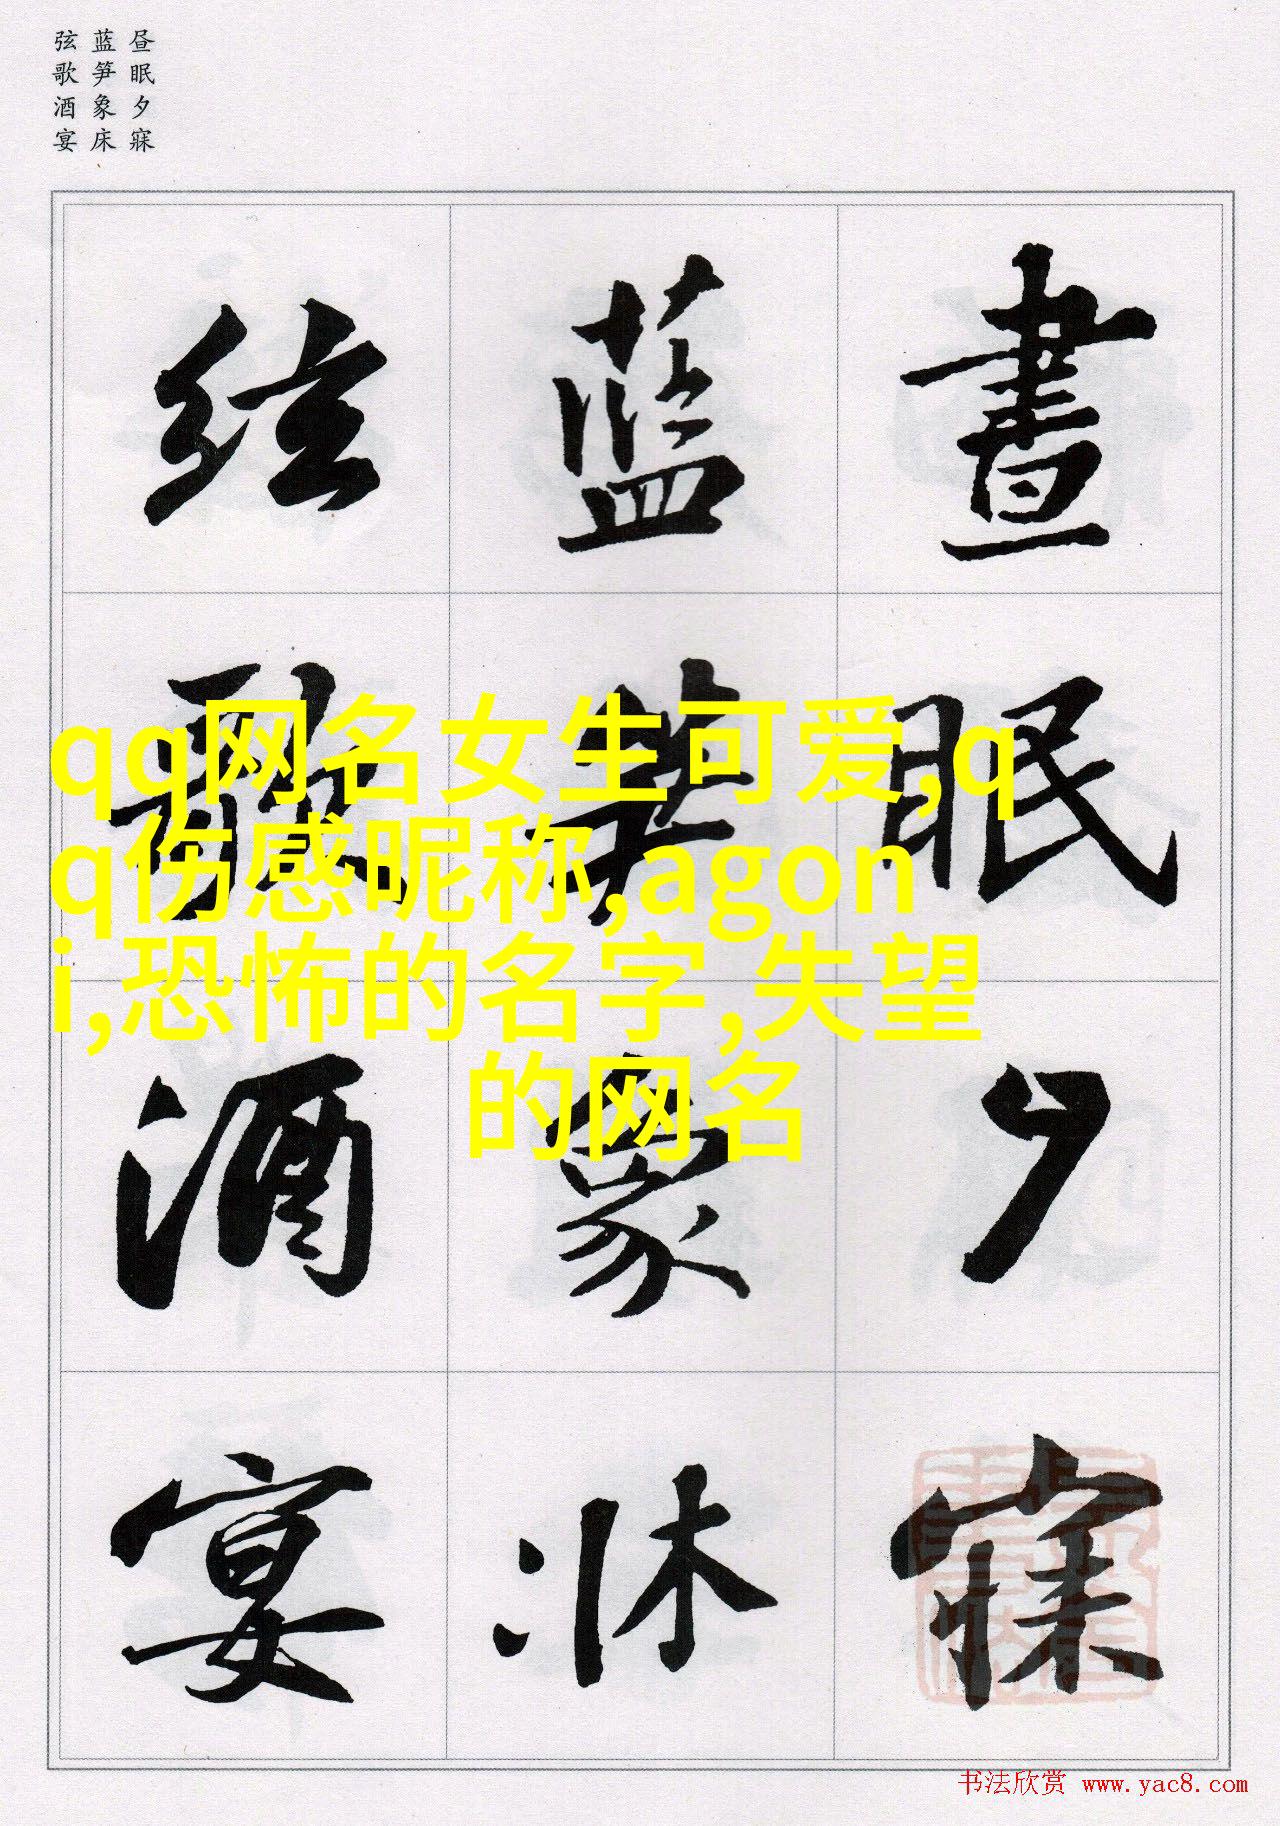 昼眠夕寐
蓝笋象床
弦歌酒宴
晝眠夕寐
藍笋象牀
絃歌酒宴
qq网名女生可爱,q
q伤感昵称,agon
i,恐怖的名字,失望
的网名
书法欣赏 www.yac8.com